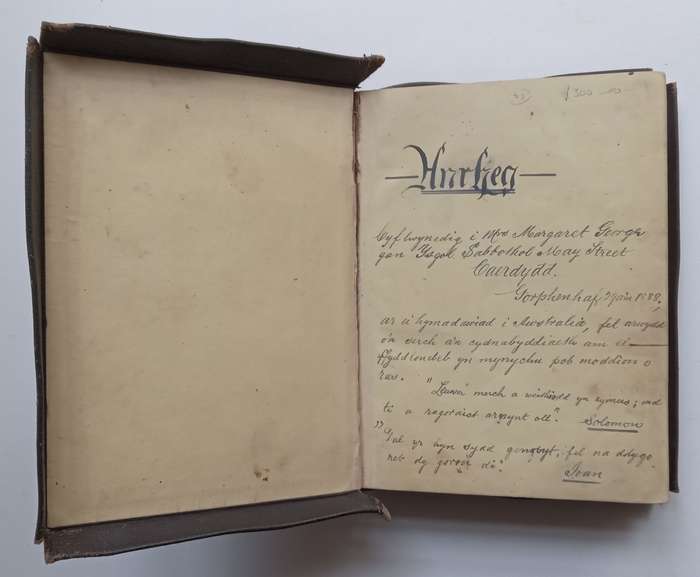 $300 00
Anrheg
Cyflwynedig i Mrs Margaret George
gan Ysgol Sabbothol May Street
Caerdydd.
Gorphenhaf 1888,
ar ei hymadawiad i Awstralia, fel arwydd
o'n serch a'n cydnabyddiaeth am ei
ffyddlondeb yn mynychu pob moddion o
ras.
"Llawer merch a weithiodd yn rymus; ond
ti a ragoraist arnynt oll". Solomon
"Dal yr hyn sydd genyt, fel na ddygo
neb dy goron di". Ioan